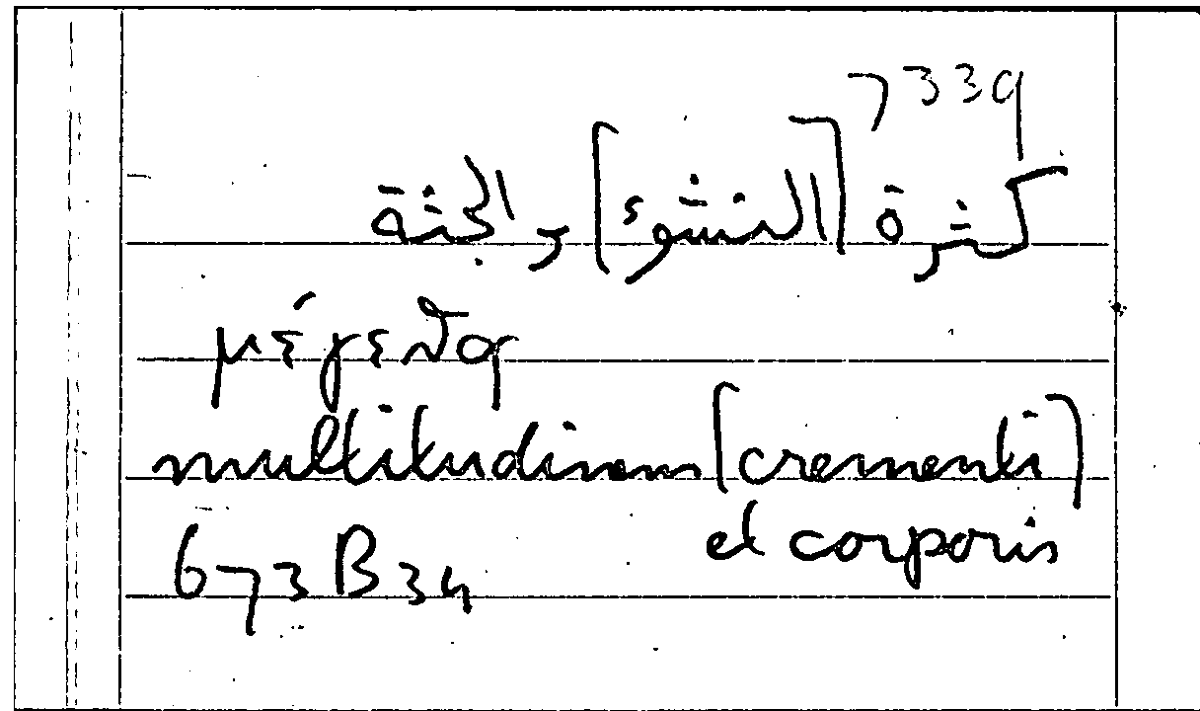 7339
كثرة [النشوء] والجثة
μέγεθος
multitudinem [crementi]
et corporis
673 B 34